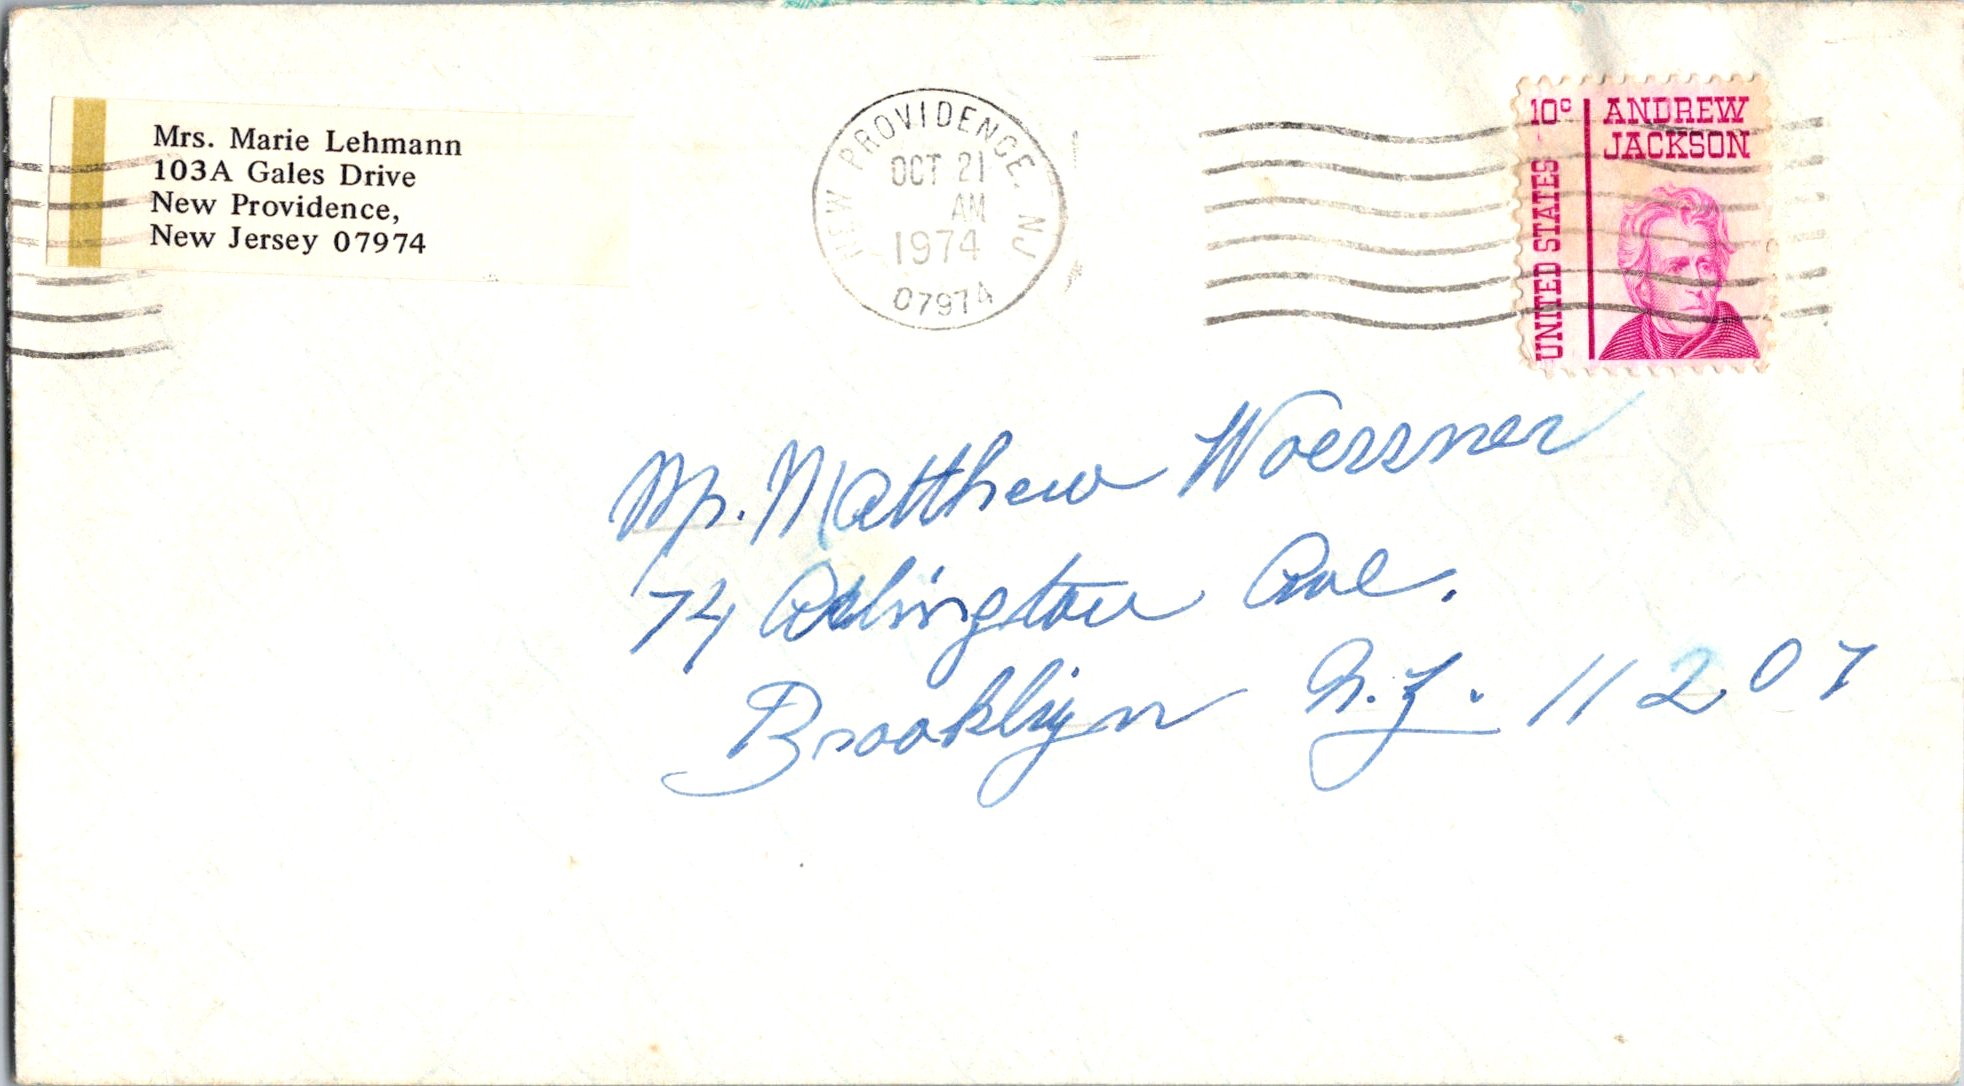 Mrs. Marie Lehmann
103A Gales Drive
New Providence,
New Jersey 07974
NEW PROVIDENCE, NJ
OCT 21
AM
1974
07974
10c
ANDREW
JACKSON
UNITED STATES
Mr. Matthew Woerrner
74 Arlington Ave.
Brooklyn N.Y. 11207